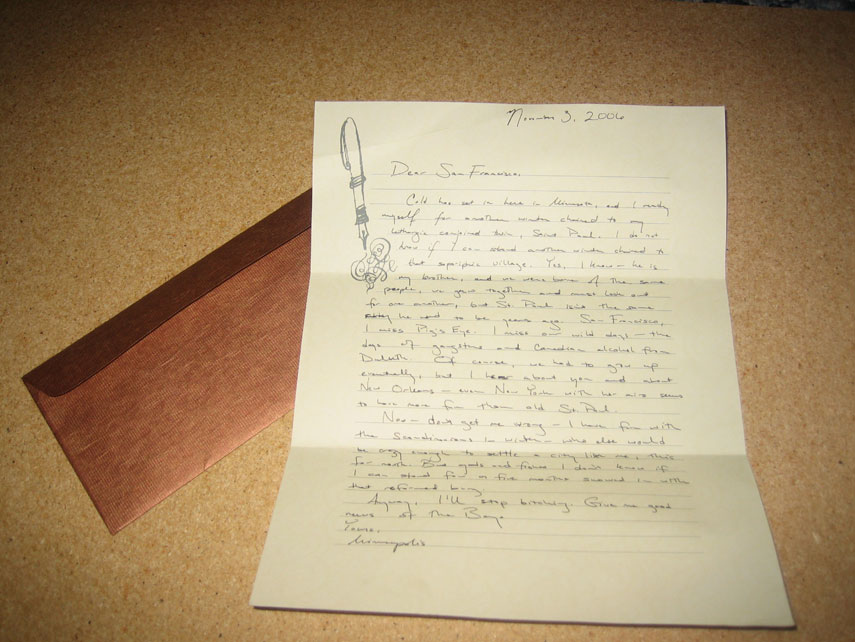 November 3, 2006
Dear San Francisco,
Cold has set in here in Minnesota, and I ready
myself for another winter chained to my
lethargic conjoined twin, Saint Paul. I do not
know if I can stand another winter chained to
that soporiphic village. Yes, I know - he is
my brother, and we were borne of the same
people, we grew together and must look out
for one another, but St. Paul isn't the same
he used to be years ago. San Francisco,
I miss Pig's Eye. I miss our wild days - the
days of gangsters and Canadian alcohol from
Duluth. Of course, we had to grow up
eventually, but I hear about you and about
New Orleans - even New York with her airs seems
to have more fun than old St. Paul.
Now - don't get me wrong - I have fun with
the Scandinavians in winter - who else would
be crazy enough to settle a city like me, this
far north. But gods and fishes I don't know if
I can stand four or five months snowed in with
that reformed
Anyway, I'll stop bitching. Give me good
news of the Bay.
Yours,
Minneapolis